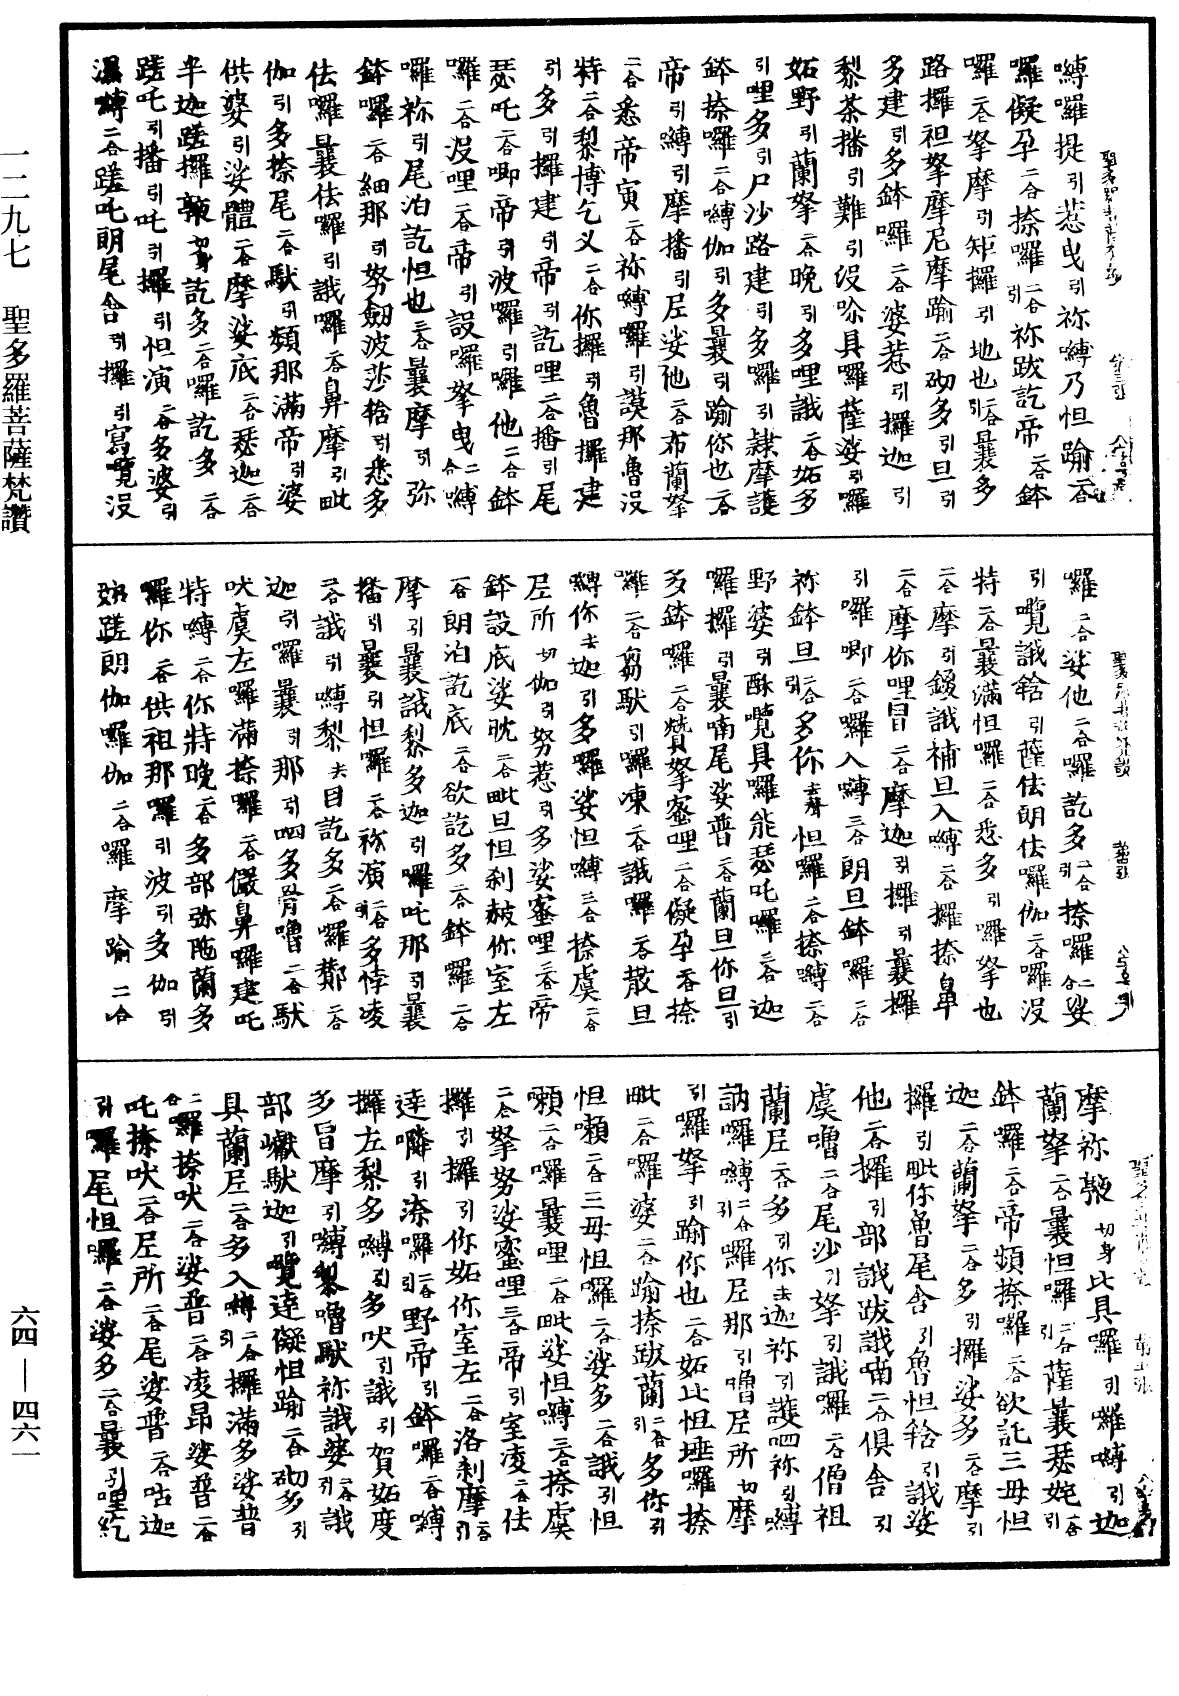 嚩囉提引惹曳引祢嚩乃怛踰二合
囉儗孕二合捺囉二合引祢跋訖帝二合鉢
囉二合拏摩引矩攞引地也二合引曩多
路攞袒拏摩尼摩踰二合砌多引旦引
多建引多鉢囉二合婆惹引攞迦引
黎茶播引難引沒哆具囉薩娑引囉
妬野引蘭拏二合晚引多哩誐二合妬多
引哩多引尸沙路建引多囉引隷摩護
鉢捺囉二合嚩伽引多曩引踰你也二合
帝引嚩引摩播引𡱝娑他二合布蘭拏
二合悉帝寅二合祢嚩囉引謨那魯沒
特二合黎博乞义二合你攞引魯攞建
引多引攞建引帝引訖哩二合播引尾
瑟吒二合唧帝引波囉引囉他二合鉢
囉二合沒哩二合帝引設囉拏曳二合嚩
囉祢引尾泊訖怛也三合曩摩引弥
鉢囉二合細那引努劒波莎捨引悉多
佉囉曩佉囉引誐囉二合鼻摩引毗
伽引多捺尾二合馱引頬那滿帝引婆
供婆引娑體二合摩娑底二合瑟迦二合
半迦蹉攞𩕳切身訖多二合囉訖多二合
蹉吒引播引吒引攞引怛演二合多婆引
濕嚩二合蹉吒朗尾舍引攞引寫覽沒
囉二合娑他二合囉訖多二合引捺囉二合娑
引覽誐鎋引薩佉朗佉囉伽二合囉沒
特二合曩滿怛囉二合悉多引囉拏也
二合摩引鑁誐補旦入嚩二合攞捺鼻
二合摩你哩冒二合摩迦引攞引曩攞
引囉唧二合囉入嚩三合朗旦鉢囉二合
祢鉢旦二合引多你去聲怛囉二合捺嚩二合
野婆引酥覽具囉能瑟吒囉三合迦
囉攞引曩喃尾娑普二合蘭旦你旦引
多鉢囉二合贊拏蜜哩二合儗孕二合捺
囉二合芻馱引囉凍二合誐囉二合散旦
嚩你去迦引多囉娑怛嚩三合捺虞二合
𡱝所切伽引努惹引多娑蜜哩二合帝
鉢設底娑晩二合毗旦怛刹赦你室左
二合朗泊訖底二合欲訖多二合鉢囉二合
摩引曩誐黎多迦引囉吒那引曩
播引曩引怛囉二合祢演二合引多悖凌
二合誐引嚩黎去目訖多二合囉鄼二合
迦引囉曩引那引呬多骨嚕二合馱
吠虞左囉滿捺囉二合儼鼻囉建吒
特嚩二合你特晚二合多部弥陁蘭多
囉你二合供袒那囉引波引多伽引
妳蹉朗伽囉伽二合囉摩踰二合
摩祢𩕳切身比具囉引囉嚩引迦
蘭拏二合曩怛囉二合引薩曩瑟姹二合引
鉢囉二合帝頻捺囉二合欲訖三毋怛
迦二合蘭拏二合多引攞娑多二合摩引
攞引毗你魯尾舍引魯怛鎋引誐娑
他二合攞引部誐跋誐喃二合俱舍引
虞嚕二合尾沙引拏引誐囉二合僧祖
蘭𡱝二合多引你去迦祢引護呬祢引嚩
訥囉嚩二合引囉𡱝那引嚕𡱝所切摩
引囉拏引踰你也二合妬比怛埵囉捺
毗二合囉婆二合踰捺跋蘭二合引多你引
怛嚩二合三毋怛囉二合娑多二合誐引怛
嚬二合囉曩哩二合毗娑怛嚩三合捺虞
二合拏努娑蜜哩三合帝引室凌二合佉
攞引攞引你妬你室左二合洛刹摩二合引
達嚩引渿囉二合引野帝引鉢囉二合嚩
攞左黎多嚩引多吠引誐引賀妬度
多旨摩引嚩黎嚕馱祢誐娑二合引誐
部巘馱迦引覽達儗怛踰二合砌多引
具蘭𡱝二合多入嚩二合引攞滿多娑普
二合囉捺吠二合娑普二合凌昂娑普二合
吒捺吠二合𡱝所二合尾娑普二合呫迦
引囉尾怛囉二合娑多二合曩引哩紇
一二九七
聖多羅菩薩梵讚
六四—四六一